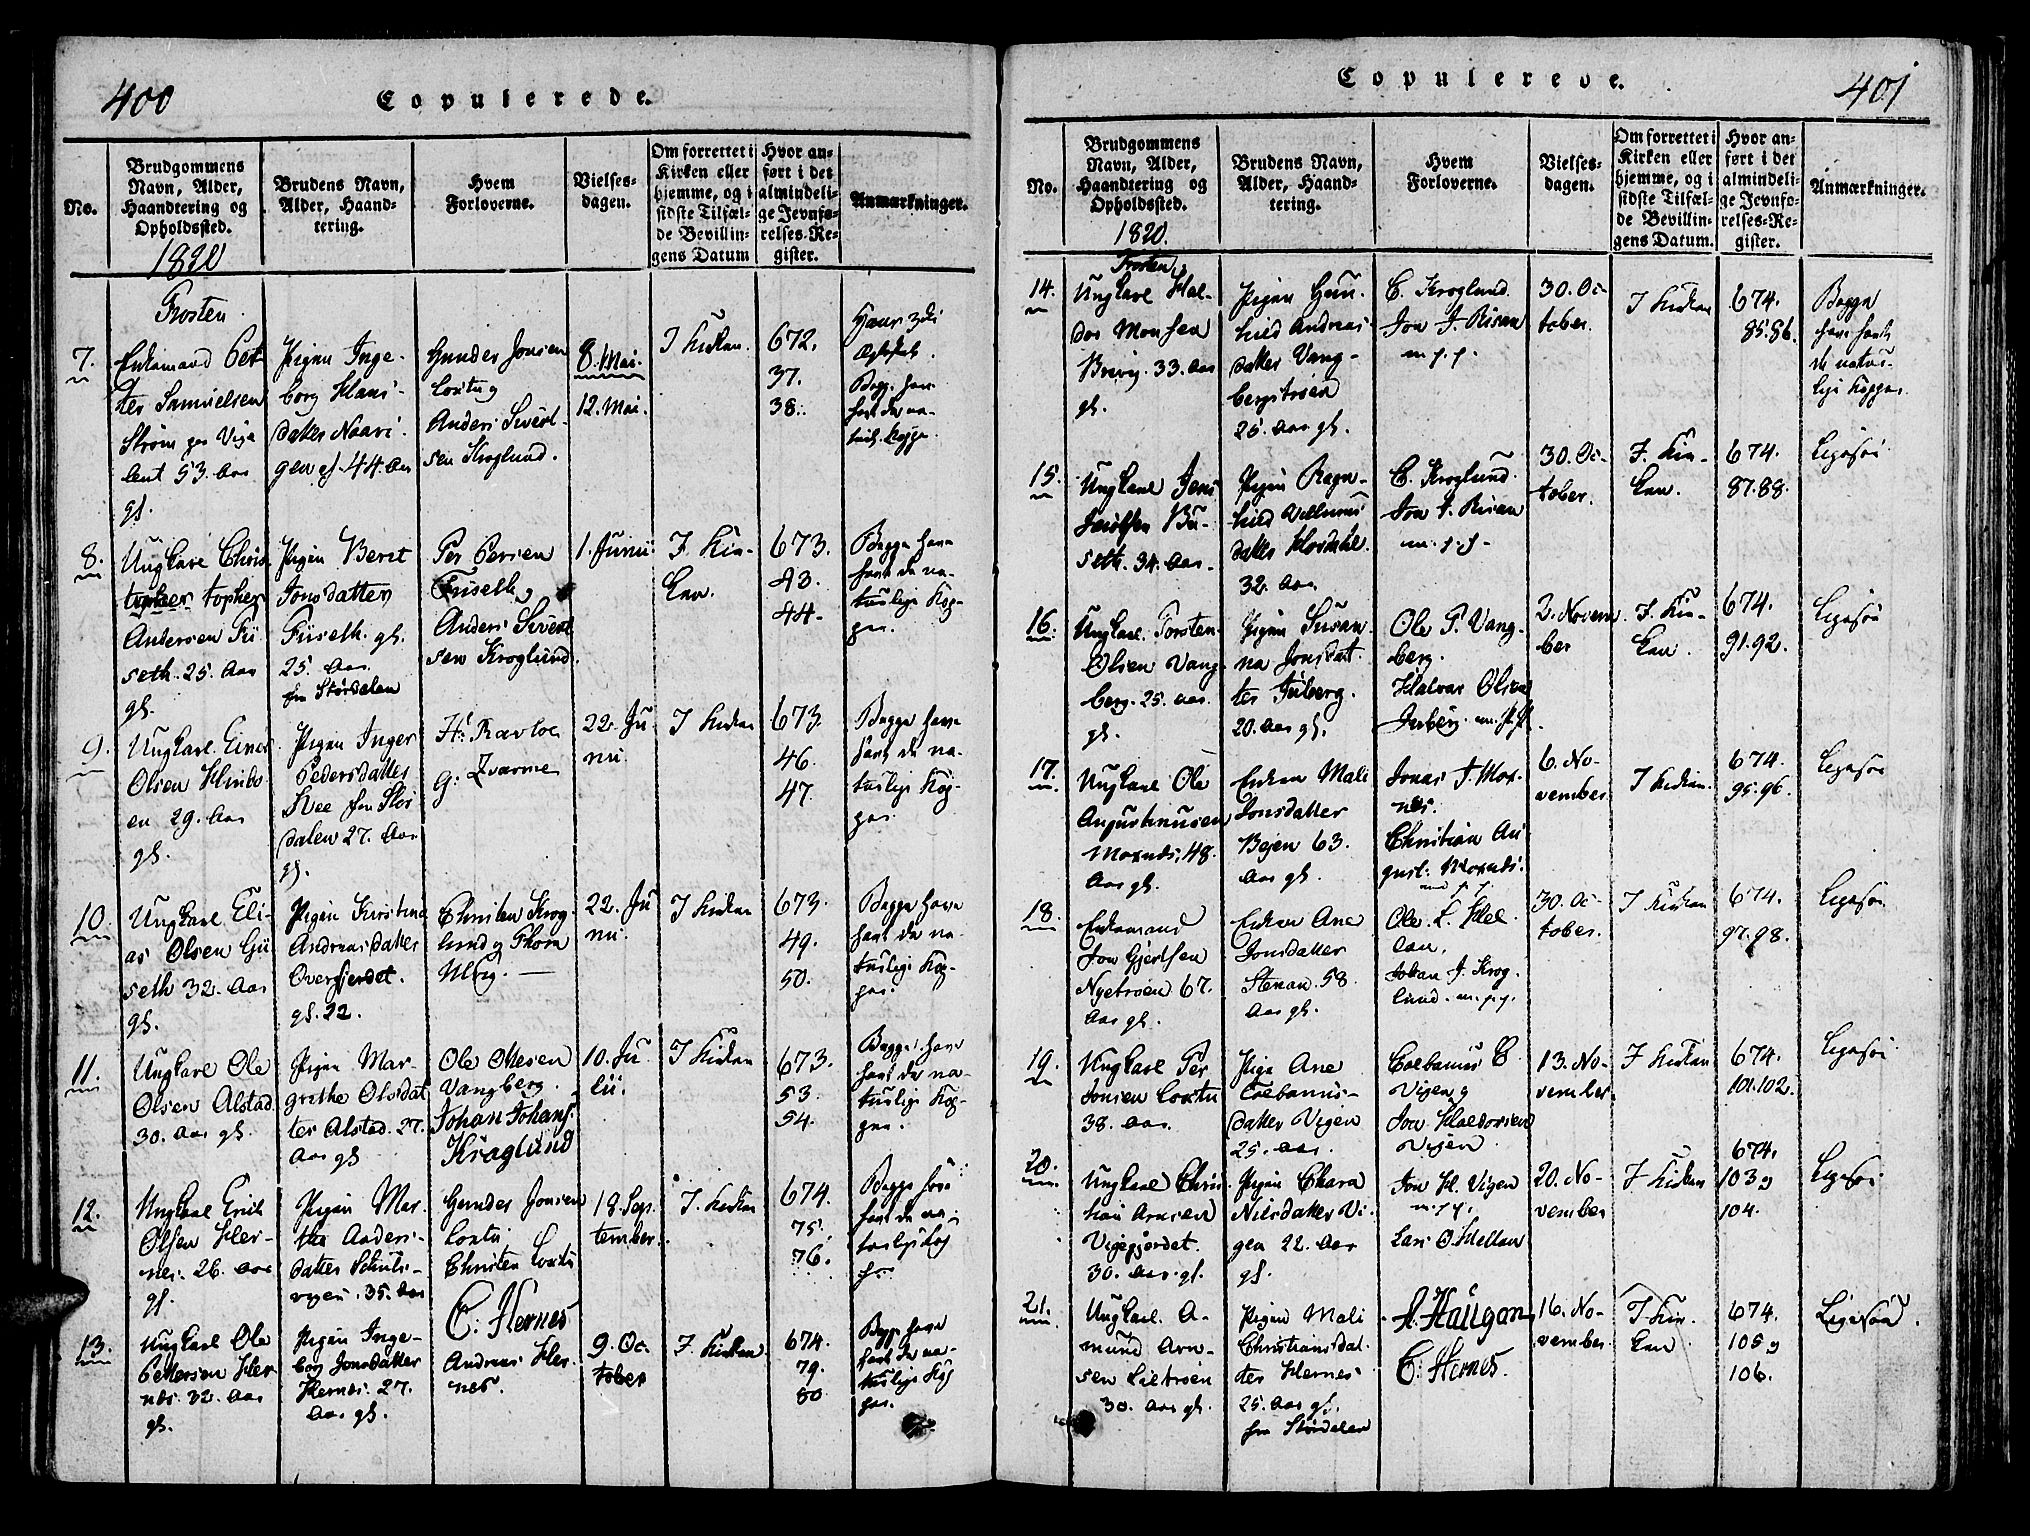 400
Copulerede.
No.
Brudgommens
Navn, Alder,
Haandtering og
Opholdssted.
1820
Brudens Navn,
Alder, Haand-
tering.
Hvem
Forloverne.
Vielses-
dagen.
Om forrettet i
Kirken eller
hjemme, og i
sidste Tilfæl-
de Bevillin-
gens Datum
Hvor an-
ført i det
almindeli-
ge Jevnfø-
relses-Re-
gister.
Anmærkninger.
Frosten.
7.
Enkemand Pet-
ter Samuelsen
Strøm
53. Aar
gl.
Pigen Inge-
borg Hans-
datter
gl. 44. Aar
Gunder Jonsen
Loxtu og
Anders Sivert-
sen Kroglund.
8. Mai.
12. Mai.
I Kirken.
672.
37.
38.
Begge have
havt de na-
turl. Kopper.
8.
Ungkarl Chris-
topher
Andersen Fü-
seth. 25. Aar
gl.
Pigen Berit
Jonsdatter
Füseth. gl.
25. Aar.
fra Størdalen
Per Persen
Füseth
Anders Sivert
sen Kroglund.
1. Junii
I Kir-
ken.
673.
43.
44.
Begge have
havt de na-
turlige Kop-
per.
9.
Ungkarl Einer
Olsen Hinbo-
en 29. Aar
gl.
Pigen Inger
Pedersdatter
Hee fra Stør
dalen 27. Aar
gl.
H: Ravloe
G: Zvarme
22. Ju-
nii.
I Kirken
673.
46.
47.
Begge have
havt de na-
turlige Kop-
per.
10.
Ungkarl Eli-
as Olsen Gü
seth 32. Aar
gl.
Pigen Kirstina
Andreasdatter
Overfierdet.
gl. 32.
Christen Krog-
lund og Thore
Ulberg.
22. Ju
nii.
I Kirken
673.
49.
50.
Begge have
havt de na-
turlige Kop-
per.
11.
Ungkarl Ole
Olsen Alstad
30. Aar gl.
Pigen Mar-
grethe Olsdat
ter Alstad. 27.
Aar gl
Ole Ottesen
Vangberg.
Johan Johans.
Kraglund
10. Ju
lii.
I Kirken
673.
53.
54.
Begge have
havt de na-
turlige Kop-
per.
12.
Ungkarl Erich
Olsen Her-
nes. 26. Aar
gl.
Pigen Mar-
tha Anders-
datter
35. Aar
Gunder Jonsen
Loxtu
Christen Loxtu
18. Sep-
tember.
I Kirken
674.
75.
76.
Begge have
havt de na-
turlige Kop
per.
13.
Ungkarl Ole
Pettersen Her
nes. 32. Aar
gl.
Pigen Inge-
borg Jonsdatter
Hernes. 27.
Aar gl.
C. Hernes
Andreas Her-
nes.
9. Oc-
tober
I Kirken.
674.
79.
80
Begge have
havt de na-
turlige Kop
per.
Copulerede.
401
No.
Brudgommens
Navn, Alder,
Haandtering og
Opholdssted.
1820.
Brudens Navn,
Alder, Haand-
tering.
Hvem
Forloverne.
Vielses-
dagen.
Om forrettet i
Kirken eller
hjemme, og i
sidste Tilfæl-
de Bevillin-
gens Datum.
Hvor an-
ført i det
almindeli-
ge Jevnfø-
relses-Re-
gister.
Anmærkninger.
Frosten
14.
Ungkarl Hal-
dor Monsen
Brevig. 33. Aar
gl.
Pigen Gun-
hild Andreas-
datter Vang-
bergstrøen
25. Aar gl.
C. Kroglund.
Jon J. Risan
m. p. p.
30. Oc-
tober.
I Kirken
674.
85.86.
Begge
have havt
de natur-
lige Kopper.
15.
Ungkarl Jens
Bü-
seth. 34. Aar.
Pigen Ragn-
hild Villums
datter Hordahl.
32. Aar.
C. Kroglund.
Jon J. Risan
m. p. p.
30. Oc-
tober.
I Kir-
ken.
674.
87.88.
Ligesaa
16.
Ungkarl Torsten
Olsen Vang-
berg. 25. Aar.
gl.
Pigen Susan-
na Jonsdat-
ter Julberg.
20. Aar gl.
Ole P. Vang-
berg.
Halvar Olsen
m. p. p.
2. Novem
ber
I Kir-
ken.
674.
91.92.
Ligesaa
17.
Ungkarl Ole
Augustinusen
Moxnes, 48.
Aar gl.
Enken Mali
Jonsdatter
Bejen 63.
Aar gl.
Jonas J. Mox-
nes.
Christian Au
gust. Moxnes.
m. p. p.
6. No-
vember
I Kirken.
674.
95.96.
Ligesaa
18.
Enkemand
Jon Gjertsen
Nyetrøen 67.
Aar gl.
Enken Ane
Jonsdatter
Stenan 58.
Aar gl.
Ole L. Hel
lan.
Johan J. Krog-
lund. m. p. p.
30. Oc-
tober.
I Kirken
674.
97.98.
Ligesaa
19.
Ungkarl Per
Jonsen Loxtu
38. Aar.
Pige Ane
Colbanus-
datter Vigen
25. Aar.
Colbanus C.
Vigen og
Jon Haldorsen
Vigen.
13. No-
vember.
I Kirken
674.
101.102.
Ligesaa
20.
Ungkarl Chris-
tian Arnsen
Vigepjerdet.
30. Aar. gl.
Pigen Chara
Nilsdatter Vi-
gen 22. Aar
gl.
Jon H. Vigen
m. p. p.
Lars O. Hellan
20. No-
vember
I Kirken
674.
103 og
104.
Ligesaa
21.
Ungkarl. A-
mund Arn-
sen Lietrøen
30. Aar gl.
Pigen Mali
Christiansdat-
ter Hernes
25. Aar gl.
fra Størdalen
A. Haugan
C. Hernes.
16. No-
vember
I Kir-
ken
674.
105 og
106.
Ligesaa.